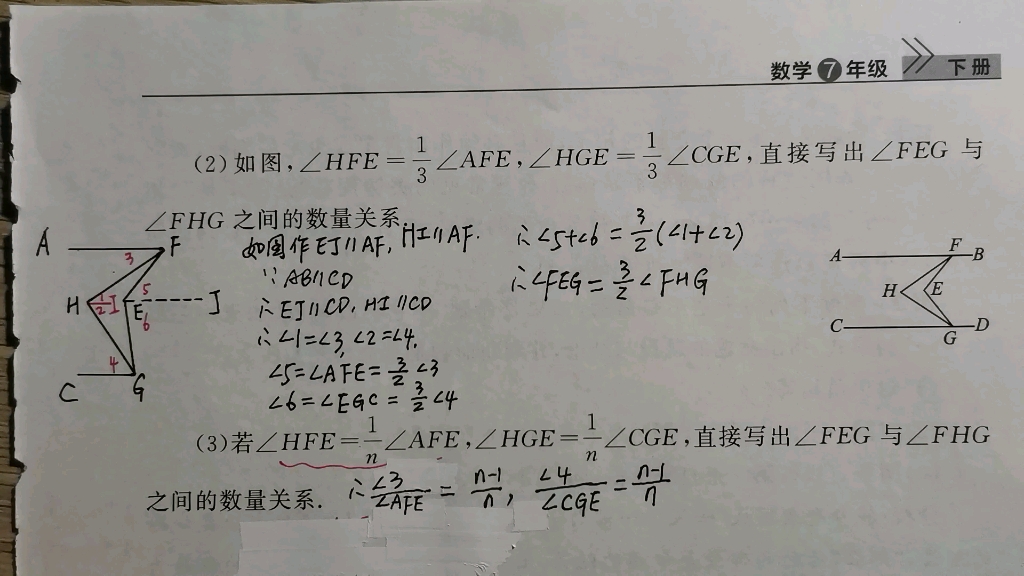 数学7年级 下册
(2)如图,∠HFE=1/3∠AFE,∠HGE=1/3∠CGE,直接写出∠FEG与
∠FHG之间的数量关系.
如图作EJ∥AF, HI∥AF.
∵AB∥CD
∴EJ∥CD, HI∥CD
∴∠1=∠3, ∠2=∠4.
∠5=∠AFE=3/2∠3
∠6=∠EGC=3/2∠4
∴∠5+∠6=3/2(∠1+∠2)
∴∠FEG=3/2∠FHG
A F
3
H 1 2 I E 5 6 J
4
C G
A F B
H E
C G D
(3)若∠HFE=1/n∠AFE,∠HGE=1/n∠CGE,直接写出∠FEG与∠FHG
之间的数量关系.
∴∠3/∠AFE=n-1/n, ∠4/∠CGE=n-1/n